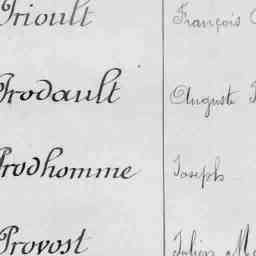 Prioult François
Prodault Auguste
Prodhomme Joseph
Provost Julien